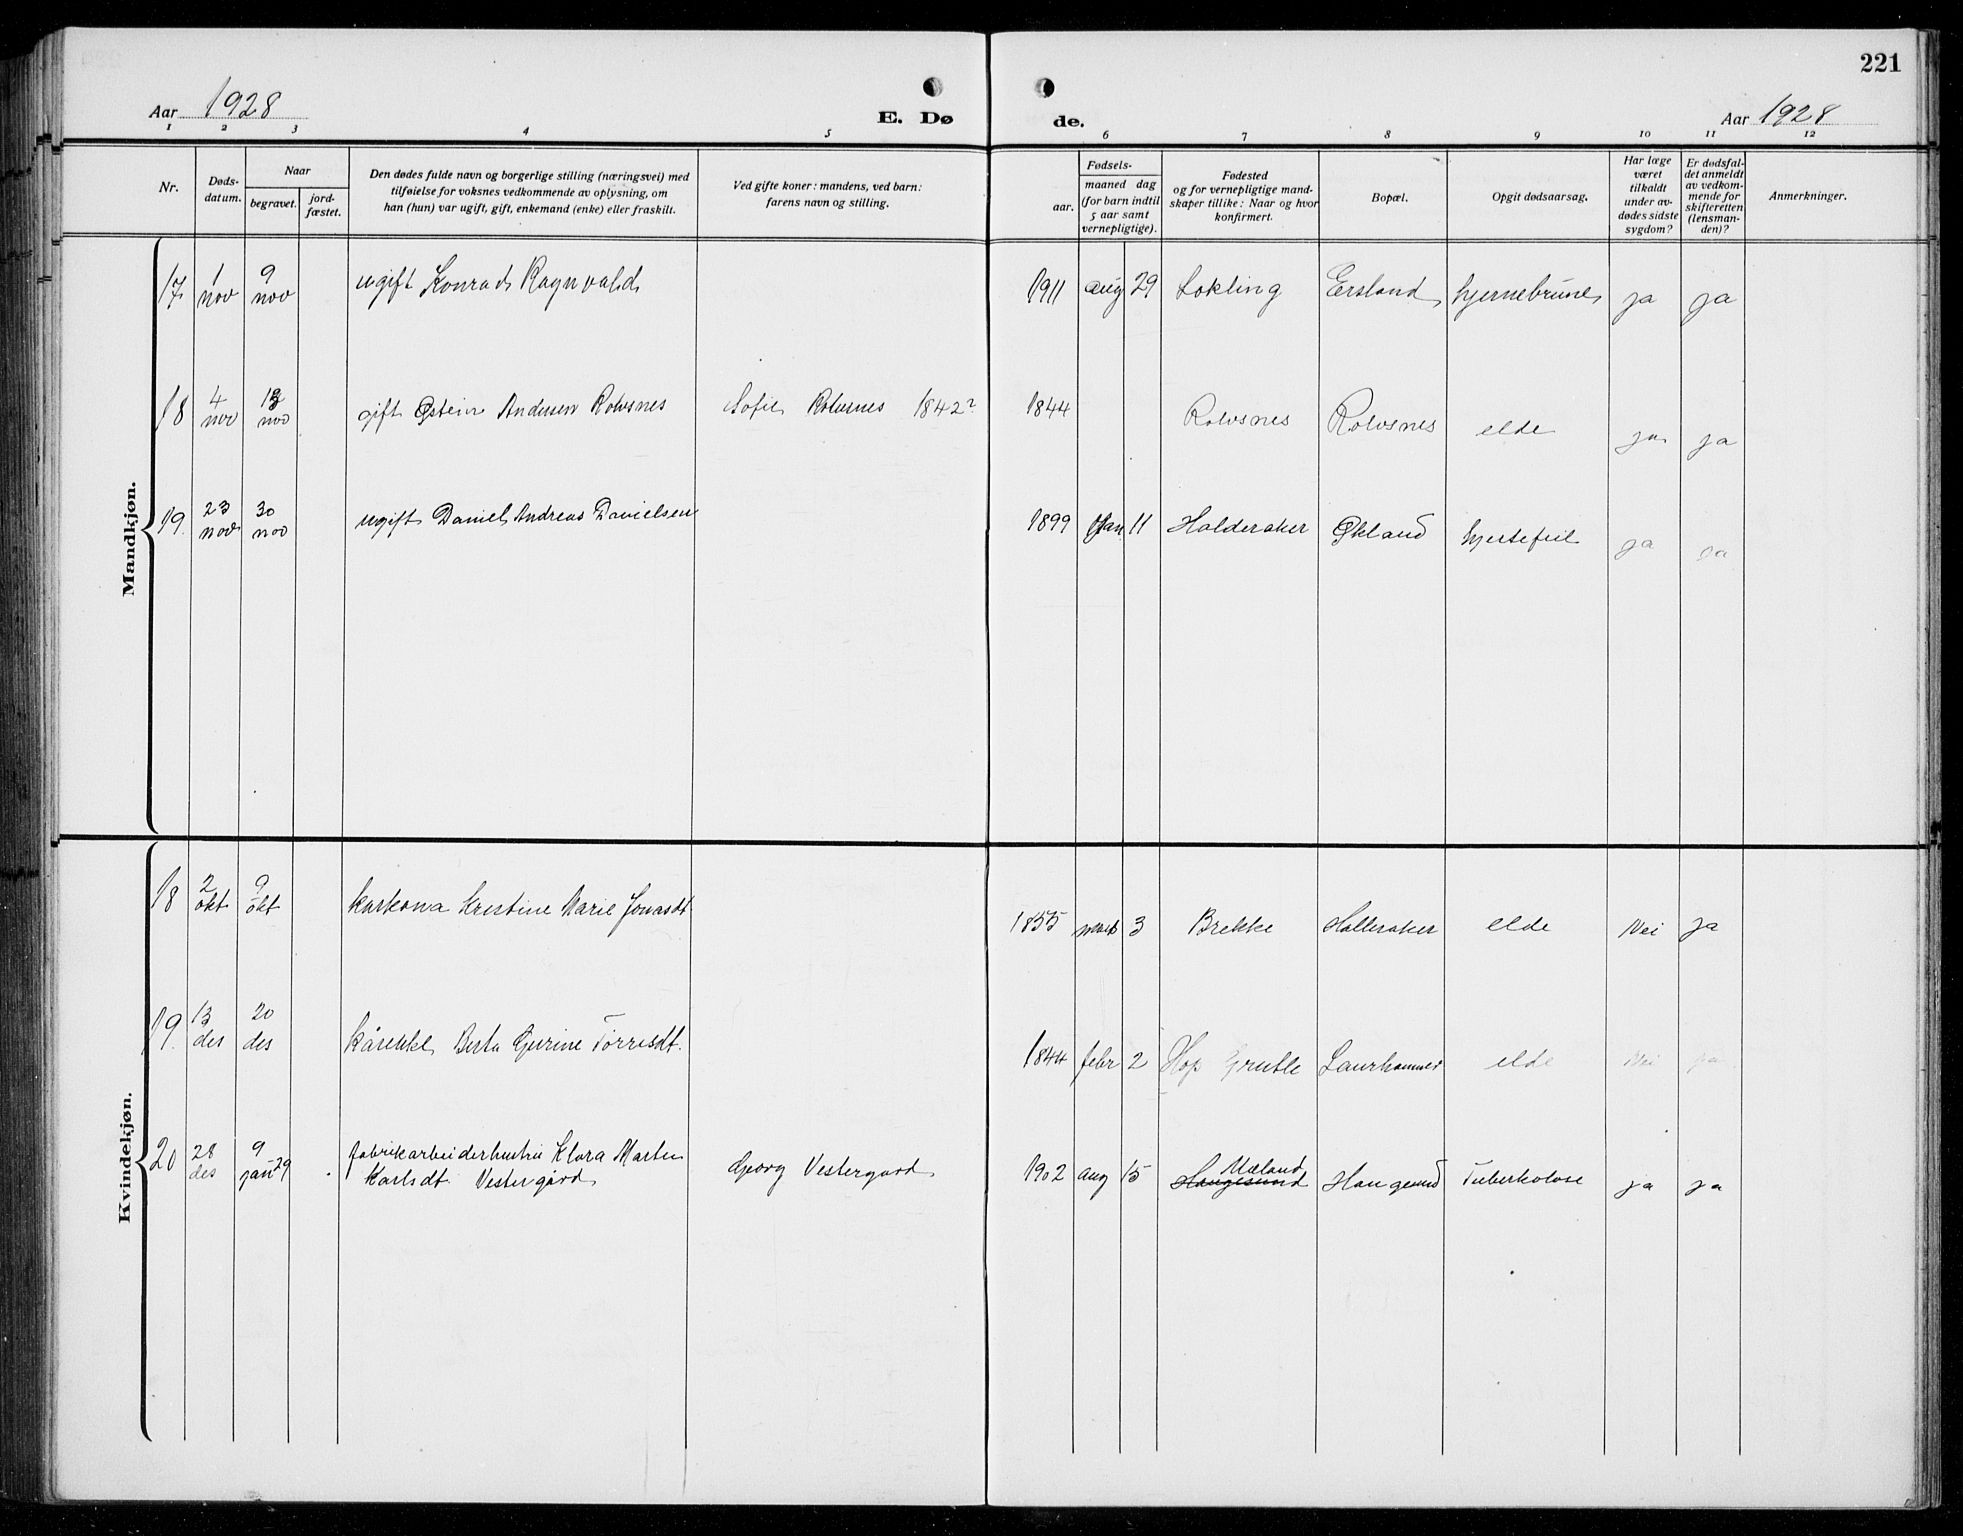 221
Aar 1928
E. Dø
de.
Aar 1928
1 2 3 4 5 6 7 8 9 10 11 12
Nr.
Døds-
datum.
Naar
begravet.
jord-
fæstet.
Den dødes fulde navn og borgerlige stilling (næringsvei) med
tilføielse for voksnes vedkommende av oplysning, om
han (hun) var ugift, gift, enkemand (enke) eller fraskilt.
Ved gifte koner: mandens, ved barn:
farens navn og stilling.
Fødsels-
aar.
maaned dag
(for barn indtil
5 aar samt
vernepligtige).
Fødested
og for vernepligtige mand-
skaper tillike: Naar og hvor
konfirmert.
Bopæl.
Opgit dødsaarsag.
Har læge
været
tilkaldt
under av-
dødes sidste
sygdom?
Er dødsfal-
det anmeldt
av vedkom-
mende for
skifteretten
(lensman-
den)?
Anmerkninger.
Mandkjøn.
17 1 nov 9 nov ugift Konrad Ragnvald 1911 aug 29 Lokling Ersland hjernebetune ja ja
18 4 nov 13 nov gift Østein Andersen Rolvsnes Sofie Rolvsnes 1842? 1844 Rolvsnes Rolvsnes elde ja ja
19. 23 nov 30 nov ugift Daniel Andreas Danielsen 1899 Jan 11 Halderaker Økland hjertefeil ja ja
Kvindekjøn.
18 2 okt 9 okt karkona Kristine Marie Jonasdt 1855 mars 3 Brekke Halleraker elde Nei ja
19. 13 des 20 des kårenke Berta Gurine Torresdt. 1844 febr 2 Hop Grutle Laurhammer elde Nei ja
20 28 des 9 jan 29 fabrikarbeiderhustru Klara Marten
Karlsdt. Vestergård Georg Vestergaard 1902 aug 15 Haugesund Mæland Haugesund Tuberkolose ja ja